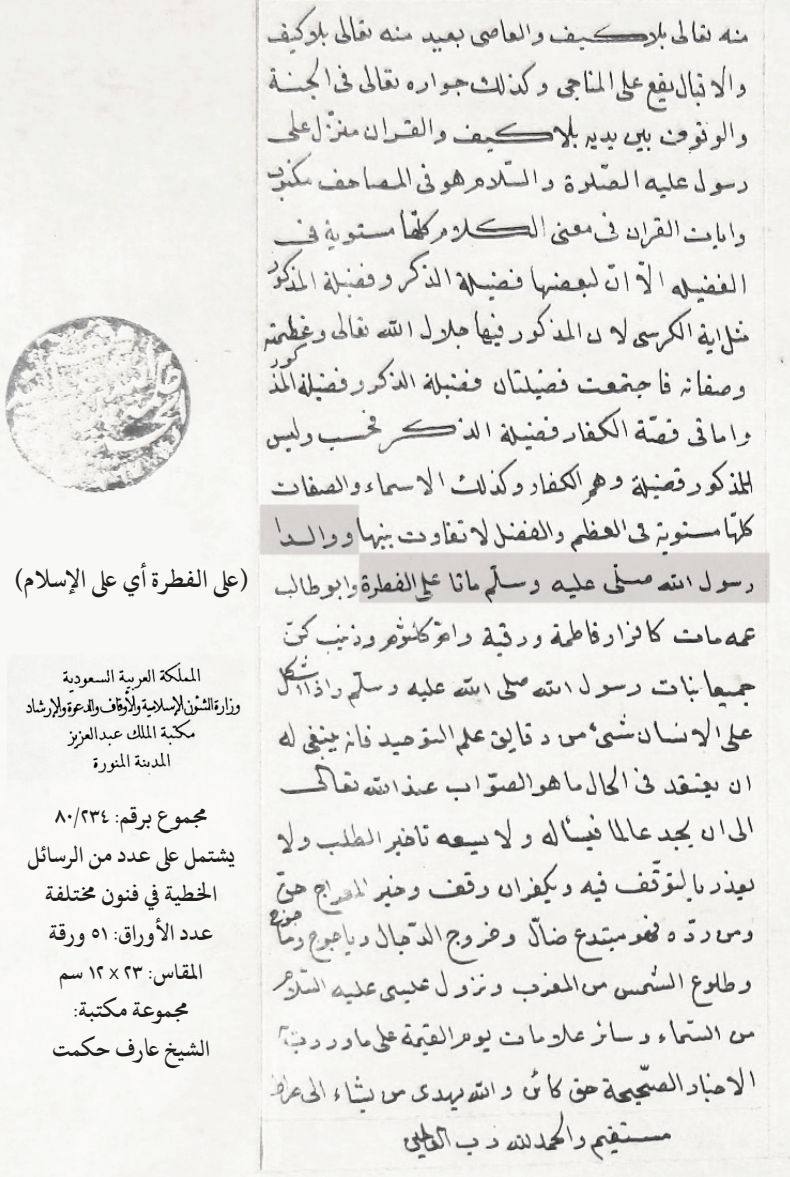 منه تعالى بلاكيف والعاصى بعيد منه تعالى بلاكيف
والاقبال يقع على المناجى وكذلك جواره تعالى فى الجنة
والوقوف بين يديه بلاكيف والقران منزل على
رسول عليه الصلوة والسلام هو فى المصاحف مكتوب
وايات القران فى معنى الكلام كلها مستوية فى
الفضيله الا ان لبعضها فضيلة الذكر وفضيلة المذكور
مثل اية الكرسى لان المذكور فيها جلال الله تعالى وعظمته
وصفاته فاجتمعت فضيلتان فضيلة الذكر وفضيلة المذكور
واما فى قصة الكفار فضيلة الذكر فحسب وليس
للمذكور فضيلة وهم الكفار وكذلك الاسماء والصفات
كلها مستوية فى العظم والفضل لا تفاوت بينها ووالدا
رسول الله صلى عليه وسلم ماتا على الفطرة وابو طالب
عمه مات كافرا وفاطمة ورقية وام كلثوم وزينب كن
جميعا بنات رسول الله صلى الله عليه وسلم واذا اشكل
على الانسان شئ من دقايق علم التوحيد فانه ينبغى له
ان يعتقد فى الحال ما هو الصواب عند الله تعالى
الى ان يجد عالما فيسأله ولا يسعه تاخير الطلب ولا
يعذر بالتوقف فيه ويكفر ان وقف وخبر المعراج حق
ومن رده فهو مبتدع ضال وخروج الدجال وياجوج وماجوج
وطلوع الشمس من المغرب ونزول عيسى عليه السلام
من السماء وسائر علامات يوم القيمة على ما وردت به
الاخبار الصحيحة حق كائن والله يهدى من يشاء الى صراط
مستقيم والحمد لله رب العالمين
(على الفطرة أي على الإسلام)
المملكة العربية السعودية
وزارة الشئون الإسلامية والأوقاف والدعوة والإرشاد
مكتبة الملك عبدالعزيز
المدينة المنورة
مجموع برقم: ٨٠/٢٣٤
يشتمل على عدد من الرسائل
الخطية في فنون مختلفة
عدد الأوراق: ٥١ ورقة
المقاس: ٢٣ × ١٢ سم
مجموعة مكتبة:
الشيخ عارف حكمت